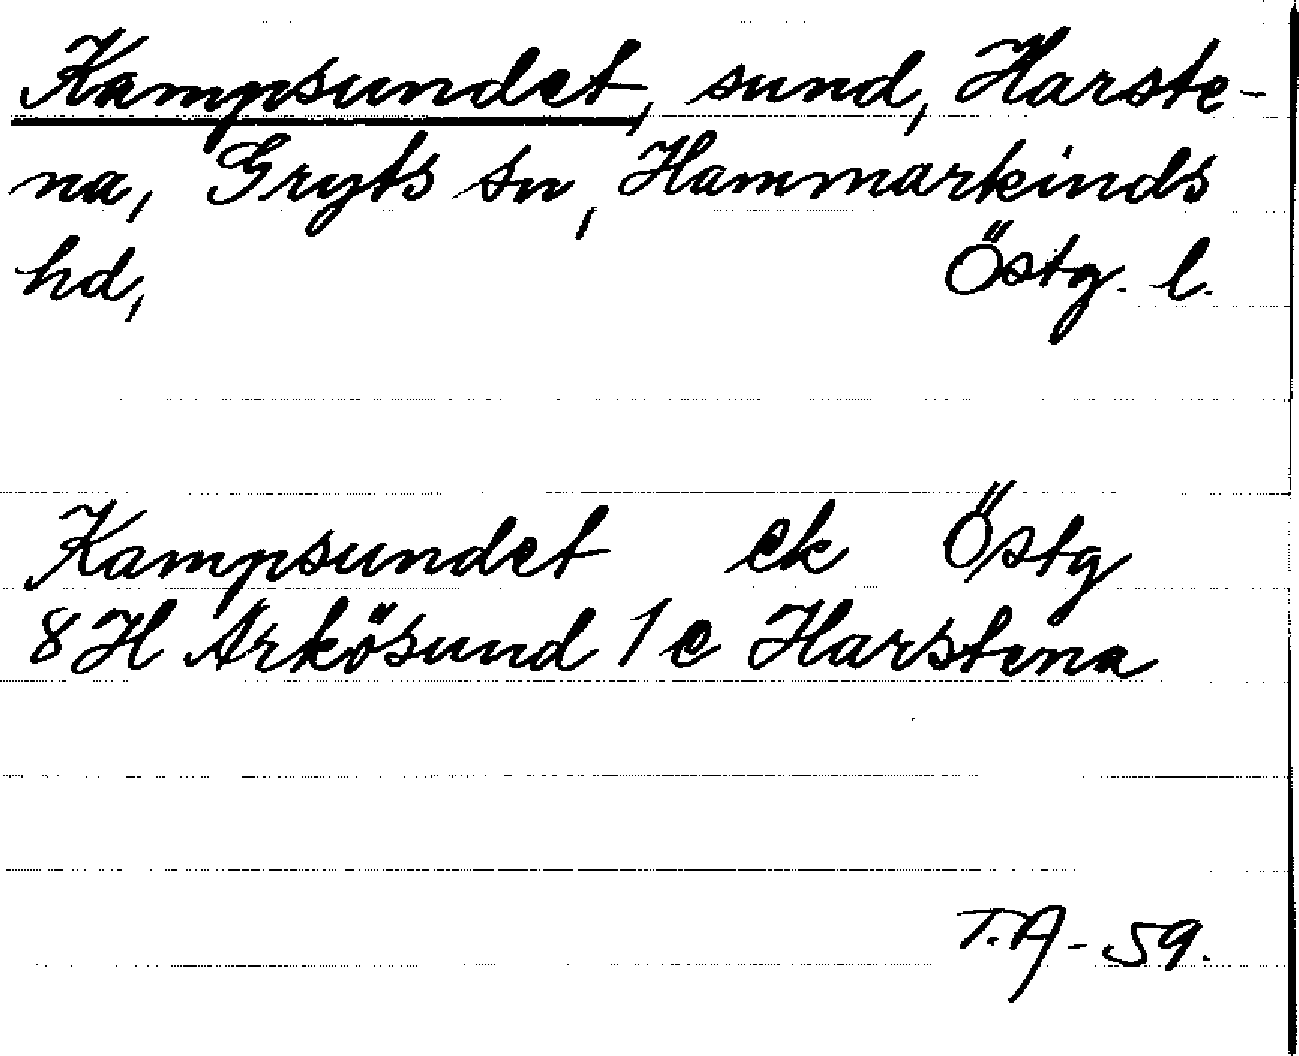 Kampsundet, sund, Harste-
na, Gryts sn, Hammarkinds
hd, Östg. l.
Kampsundet ek Östg
8H Arkösund 1c Harstena
T.A-59.